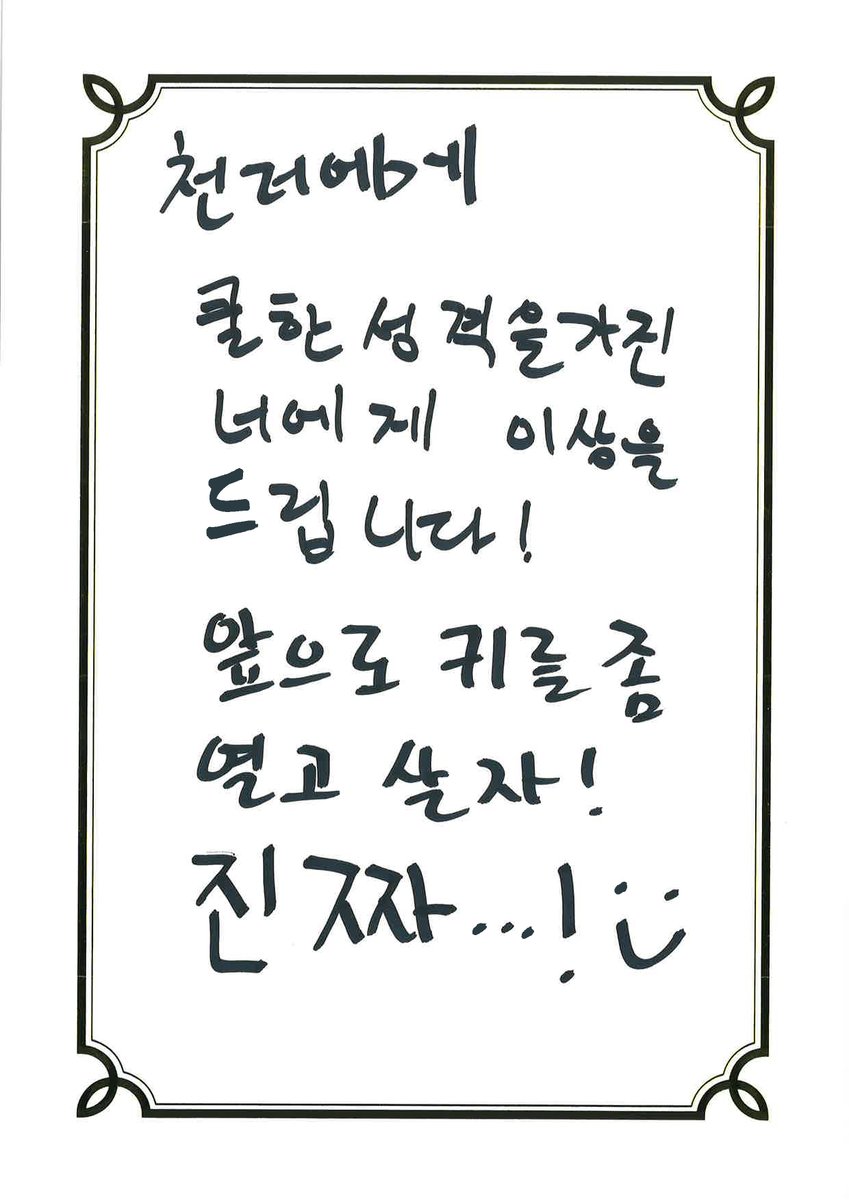 천러에게
쿨한 성격을 가진
너에게 이상을
드립니다!
앞으로 귀를 좀
열고 살자!
진짜...! :)